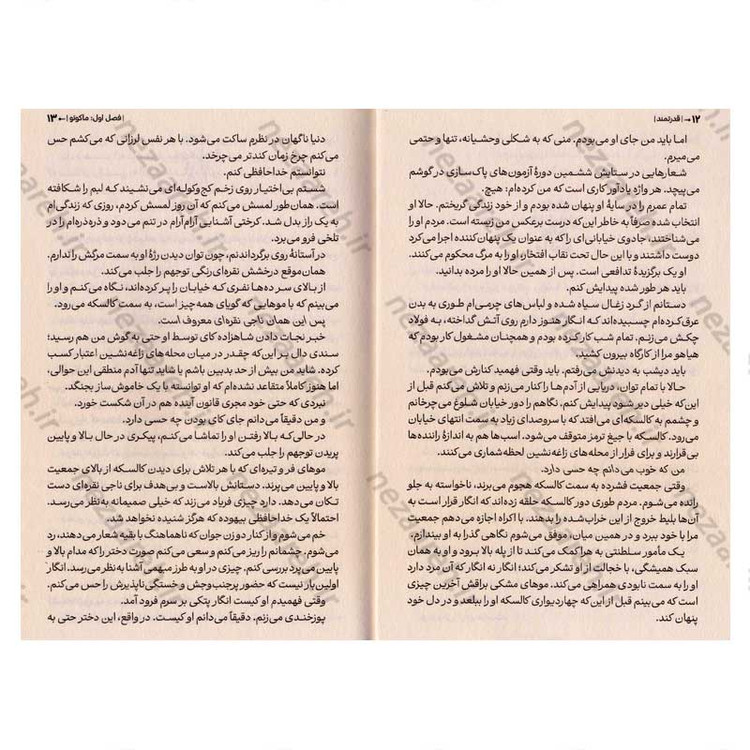 ۱۲ →| قدرتمند |
اما باید من جای او می‌بودم. منی که به شکلی وحشیانه، تنها و حتمی
می‌میرم.
شعارهایی در ستایش ششمین دورهٔ آزمون‌های پاک‌سازی در گوشم
می‌پیچد. هر واژه یادآور کاری است که من کرده‌ام: هیچ.
تمام عمرم را در سایهٔ او پنهان شده بودم و از خود زندگی گریختم. حالا او
انتخاب شده صرفاً به خاطر این‌که درست برعکس من زسته است. مردم او را
می‌شناختند، جادوی خیابانی‌ای را که به عنوان یک پنهان‌کننده اجرا می‌کرد
دوست داشتند و با این حال تحت نقاب افتخار، او را به مرگ محکوم می‌کنند.
او یک برگزیدهٔ تدافعی است. پس از همین حالا او را مرده بدانید.
باید هر طور شده پیدایش کنم.
دستانم از گرد زغال سیاه شده و لباس‌های چرمی‌ام طوری به بدن
عرق‌کرده‌ام چسبیده‌اند که انگار هنوز دارم روی آتش گداخته، به فولاد
چکش می‌زنم. تمام شب کار کرده بودم و همچنان مشغول کار بودم که
هیاهو مرا از کارگاه بیرون کشید.
باید دیشب به دیدنش می‌رفتم. باید وقتی فهمید کنارش می‌بودم.
حالا با تمام توان، دریایی از آدم‌ها را کنار می‌زنم و تلاش می‌کنم قبل از
این‌که خیلی دیر شود پیدایش کنم. نگاهم را دور خیابان شلوغ می‌چرخانم
و چشمم به کالسکه‌ای می‌افتد که با سروصدای زیاد به سمت انتهای خیابان
می‌رود. کالسکه با جیغ ترمز متوقف می‌شود. اسب‌ها هم به اندازهٔ راننده‌ها
بی‌قرارند و برای فرار از محله‌های زاغه‌نشین لحظه‌شماری می‌کنند.
من که خوب می‌دانم چه حسی دارد.
وقتی جمعیت فشرده به سمت کالسکه هجوم می‌برند، ناخواسته به جلو
رانده می‌شوم. مردم طوری دور کالسکه حلقه زده‌اند که انگار قرار است به
آن‌ها بلیط خروج از این خراب‌شده را بدهند. با اکراه اجازه می‌دهم جمعیت
مرا با خود ببرد و در همین میان، موفق می‌شوم نگاهی گذرا به او بیندازم.
یک مأمور سلطنتی به هرا کمک می‌کند تا از پله بالا برود و او به همان
سبک همیشگی، با خجالت از او تشکر می‌کند؛ انگار نه انگار که آن مرد دارد
او را به سمت نابودی همراهی می‌کند. موهای مشکی براقش آخرین چیزی
است که می‌بینم قبل از این‌که چهاردیواری کالسکه او را ببلعد و در دل خود
پنهان کند.
| فصل اول: ماکوتو |← ۱۳
دنیا ناگهان در نظرم ساکت می‌شود. با هر نفس لرزانی که می‌کشم حس
می‌کنم چرخ زمان کندتر می‌چرخد.
نتوانستم خداحافظی کنم.
شستم بی‌اختیار روی زخم کج‌وکوله‌ای می‌نشیند که لبم را شکافته
است. همان‌طور لمسش می‌کنم که آن روز لمسش کردم، روزی که زندگی‌ام
به یک راز بدل شد. کرختی آشنایی آرام‌آرام در تنم می‌دود و ذره‌ذره‌ام را در
تلخی فرو می‌برد.
در آستانهٔ روی برگرداندنم، چون توان دیدن رژهٔ او به سمت مرگش را ندارم.
همان‌موقع درخشش نقره‌ای‌رنگی توجهم را جلب می‌کند.
از بالای سر ده‌ها نفری که خیابان را پر کرده‌اند، نگاه می‌کنم و او را
می‌بینم که با موهایی که گویای همه‌چیز است، به سمت کالسکه می‌رود.
پس این همان ناجی نقره‌ای معروف است.
خبر نجات دادن شاهزاده کای توسط او حتی به گوش من هم رسید؛
سندی دال بر این‌که چقدر در میان محله‌های زاغه‌نشین اعتبار کسب
کرده. شاید من بیش از حد بدبین باشم یا شاید تنها آدم منطقی این حوالی،
اما هنوز کاملاً متقاعد نشده‌ام که او توانسته با یک خاموش‌ساز بجنگد.
نبردی که حتی خود مجری قانون آینده هم در آن شکست خورد.
و من دقیقاً می‌دانم جای کای بودن چه حسی دارد.
در حالی‌که بالا رفتن او را تماشا می‌کنم، پیکری در حال بالا و پایین
پریدن توجهم را جلب می‌کند.
موهای فر و تیره‌ای که با هر تلاش برای دیدن کالسکه از بالای جمعیت
بالا و پایین می‌پرند. دستانش بالاست و بی‌هدف برای ناجی نقره‌ای دست
تکان می‌دهد. دارد چیزی فریاد می‌زند که خیلی صمیمانه به‌نظر می‌رسد.
احتمالاً یک خداحافظی بیهوده که هرگز شنیده نخواهد شد.
خم می‌شوم و از کنار دو زن جوان که ناهماهنگ با بقیه شعار می‌دهند، رد
می‌شوم. چشمانم را ریز می‌کنم و سعی می‌کنم صورت دختر را که مدام بالا و
پایین می‌پرد بررسی کنم. چیزی در او به طرز مبهمی آشنا به‌نظر می‌رسد. انگار
اولین‌بار نیست که حضور پرجنب‌وجش و خستگی‌ناپذیرش را حس می‌کنم.
وقتی فهمیدم او کیست انگار پتکی بر سرم فرود آمد.
پوزخندی می‌زنم. دقیقاً می‌دانم او کیست. در واقع، این دختر حتی به
nezaareh.ir